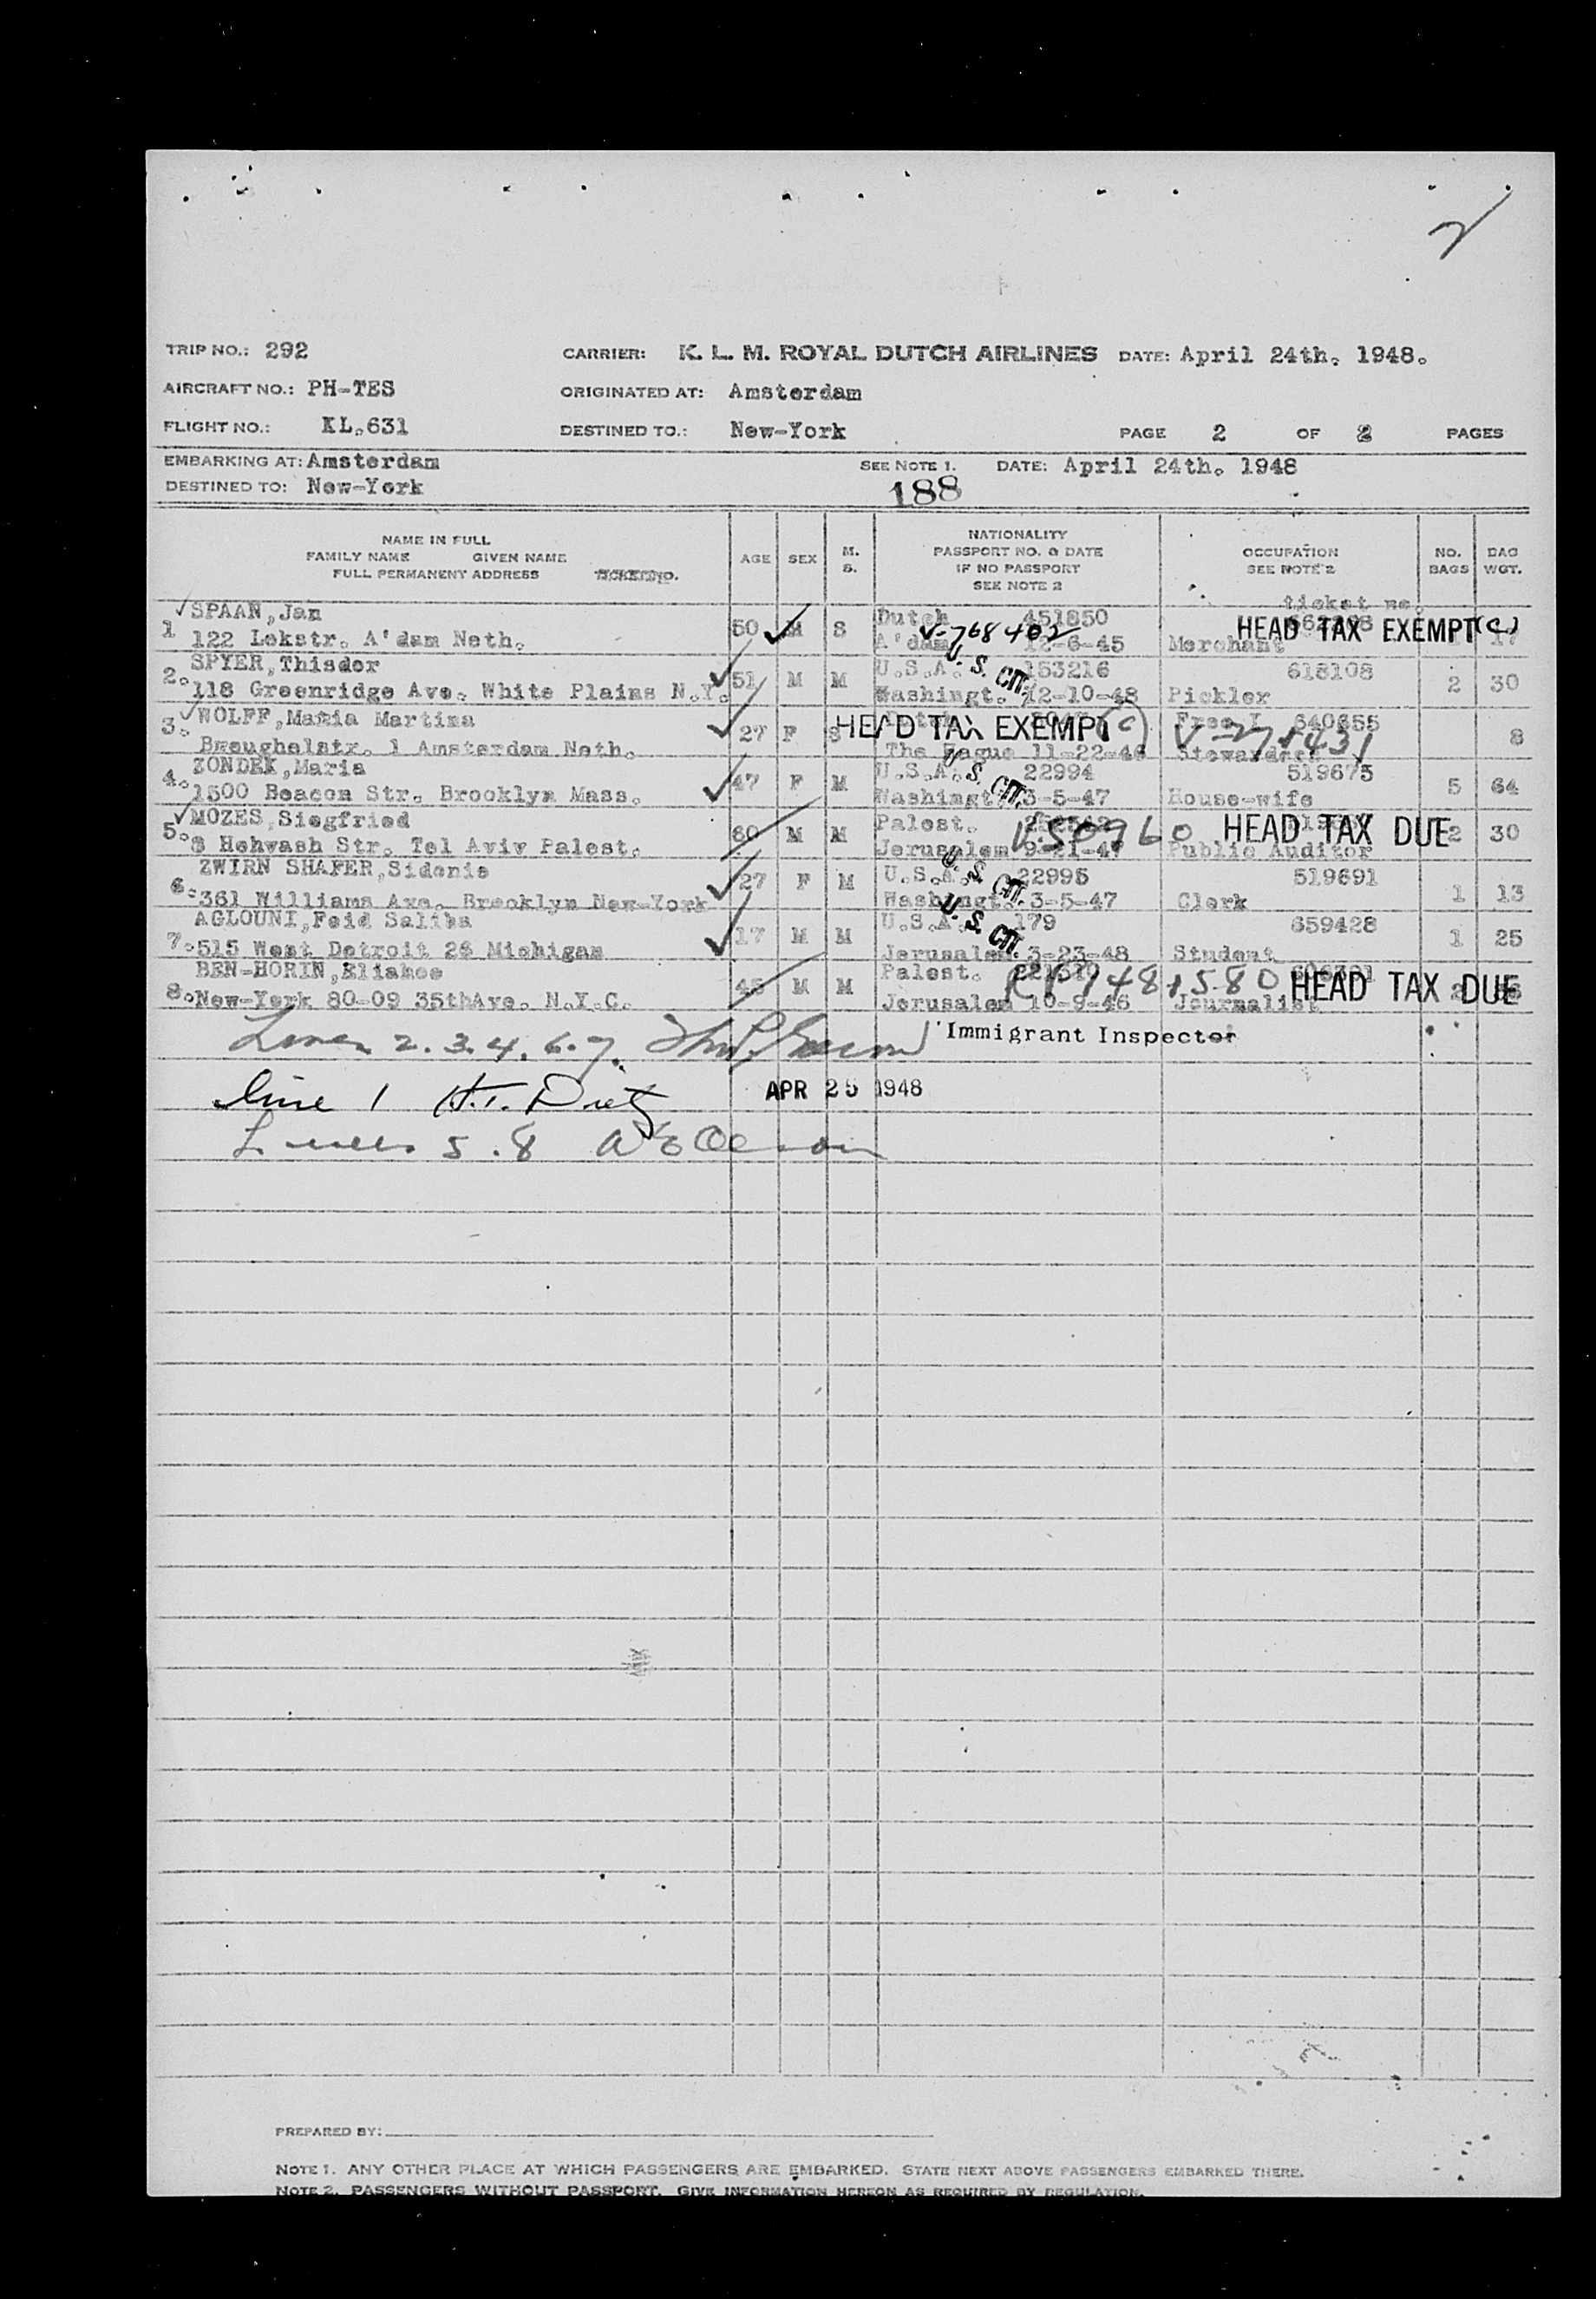 2
TRIP NO.: 292 CARRIER: K. L. M. ROYAL DUTCH AIRLINES DATE: April 24th. 1948.
AIRCRAFT NO.: PH-TES ORIGINATED AT: Amsterdam
FLIGHT NO.: KL.631 DESTINED TO.: New-York PAGE 2 OF 2 PAGES
EMBARKING AT: Amsterdam SEE NOTE 1. DATE: April 24th. 1948
DESTINED TO: New-York 188
NAME IN FULL
FAMILY NAME GIVEN NAME
FULL PERMANENT ADDRESS
AGE SEX M. S.
NATIONALITY
PASSPORT NO. & DATE
IF NO PASSPORT
SEE NOTE 2
OCCUPATION
SEE NOTE 2
NO. BAGS
BAG WGT.
ticket no.
1 SPAAN,Jan 50 M S Dutch 451850
122 Lekstr. A'dam Neth. A'dam 12-6-45 Merchant 17
V-768402 HEAD TAX EXEMPT (c)
2. SPYER,Thisdor 51 M M U.S.A. 153216 618108
118 Greenridge Ave. White Plains N.Y. Washingt. 12-10-48 Pickler 2 30
U. S. CIT.
3. WOLFF,Maria Martina 27 F S Free I 640655
Breughelstr. 1 Amsterdam Neth. The Hague 11-22-46 Stewardess 8
HEAD TAX EXEMPT (c)
4. ZONDEK,Maria 47 F M U.S.A. 22994 519675
1500 Beacon Str. Brooklyn Mass. Washingt. 3-5-47 House-wife 5 64
U. S. CIT.
5. MOZES,Siegfried 60 M M Palest.
8 Hehvash Str. Tel Aviv Palest. Jerusalem 9-21-47 Public Auditor 2 30
HEAD TAX DUE
6. ZWIRN SHAFER,Sidonie 27 F M U.S.A. 22995 519691
361 Williams Ave. Brooklyn New-York Washingt. 3-5-47 Clerk 1 13
U. S. CIT.
7. AGLOUNI,Feid Saliba 17 M M U.S.A. 179 659428
515 West Detroit 26 Michigan Jerusalem. 3-23-48 Student 1 25
U. S. CIT.
8. BEN-HORIN,Eliahoe 45 M M Palest.
New-York 80-09 35thAve. N.Y.C. Jerusalem 10-9-46 Journalist
HEAD TAX DUE
Lines 2. 3. 4. 6. 7. Immigrant Inspector
line 1 APR 25 1948
Lines 5. 8
PREPARED BY:
NOTE 1. ANY OTHER PLACE AT WHICH PASSENGERS ARE EMBARKED. STATE NEXT ABOVE PASSENGERS EMBARKED THERE.
NOTE 2. PASSENGERS WITHOUT PASSPORT. GIVE INFORMATION HEREON AS REQUIRED BY REGULATION.